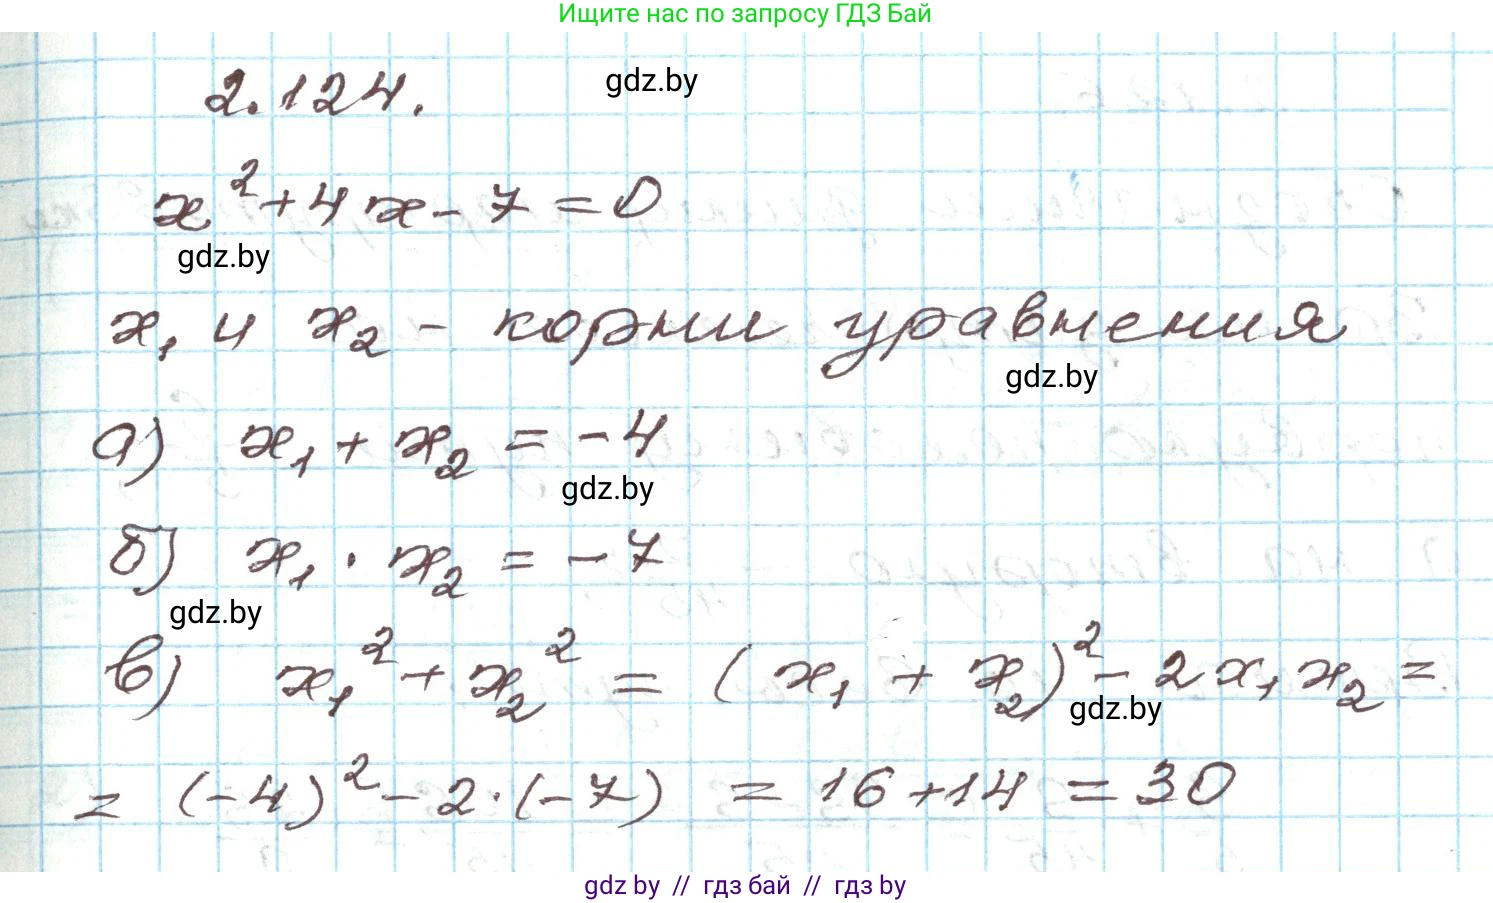 Ищите нас по запросу ГДЗ Бай
2.124.
gdz.by
x² + 4x - 7 = 0
gdz.by
x₁ и x₂ - корни уравнения
gdz.by
а) x₁ + x₂ = -4
gdz.by
б) x₁ · x₂ = -7
gdz.by
в) x₁² + x₂² = (x₁ + x₂)² - 2x₁x₂ =
gdz.by
= (-4)² - 2·(-7) = 16 + 14 = 30
gdz by // гдз бай // гдз by